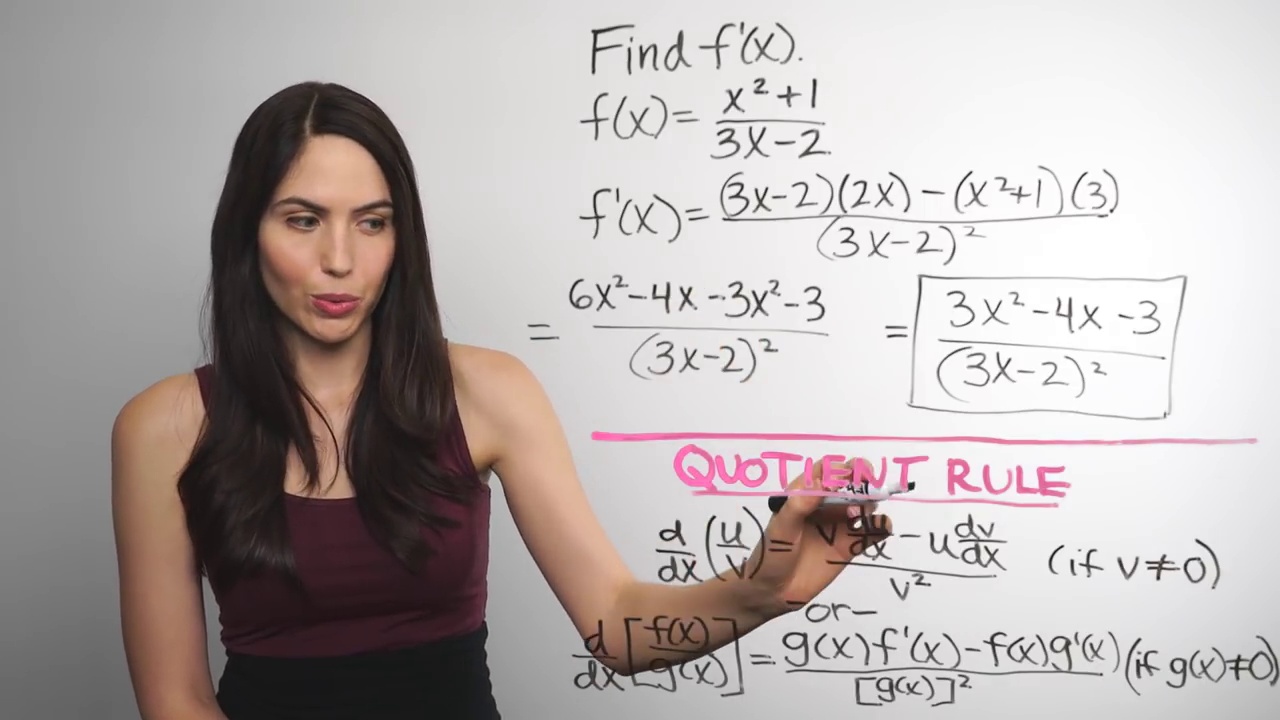 Find f'(x).
f(x) = (x² + 1)/(3x - 2)
f'(x) = ((3x-2)(2x) - (x²+1)(3))/(3x-2)²
= (6x² - 4x - 3x² - 3)/(3x-2)² = (3x² - 4x - 3)/(3x-2)²
QUOTIENT RULE
d/dx (u/v) = (v du/dx - u dv/dx)/v² (if v ≠ 0)
-or-
d/dx [f(x)/g(x)] = (g(x)f'(x) - f(x)g'(x))/[g(x)]² (if g(x) ≠ 0)